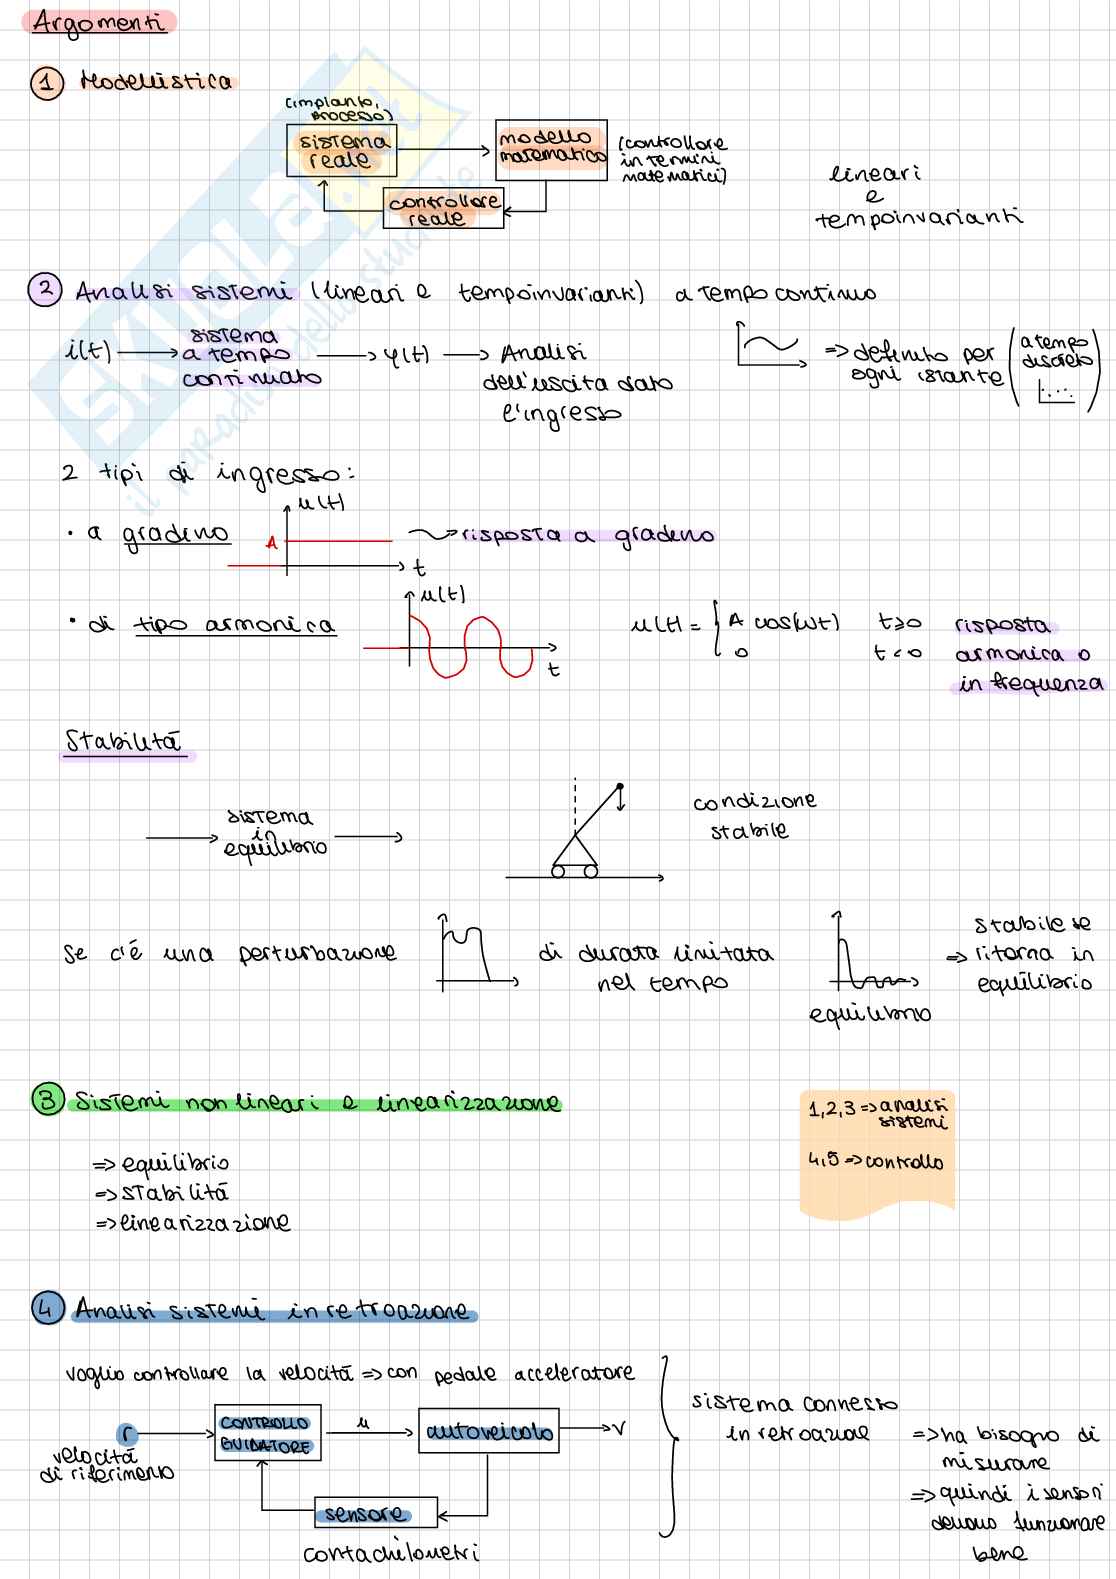 Argomenti
1 Modellistica
(impianto,
processo)
sistema
reale
modello
matematico
(controllore
in termini
matematici)
controllore
reale
lineari
e
tempoinvarianti
2 Analisi sistemi (lineari e tempoinvarianti) a tempo continuo
i(t)
sistema
a tempo
continuato
φ(t)
Analisi
dell'uscita dato
l'ingresso
=> definito per
ogni istante
a tempo
discreto
2 tipi di ingresso:
• a gradino
u(t)
A
t
risposta a gradino
• di tipo armonica
u(t)
t
u(t) = { A cos(ωt) t≥0
0 t<0
risposta
armonica o
in frequenza
Stabilità
sistema
in
equilibrio
condizione
stabile
Se c'é una perturbazione
di durata limitata
nel tempo
equilibrio
stabile se
=> ritorna in
equilibrio
3 Sistemi non lineari e linearizzazione
=> equilibrio
=> stabilità
=> linearizzazione
1,2,3 => analisi
sistemi
4,5 => controllo
4 Analisi sistemi in retroazione
voglio controllare la velocità => con pedale acceleratore
r
velocità
di riferimento
CONTROLLO
GUIDATORE
u
autoveicolo
v
sensore
contachilometri
sistema connesso
in retroazione
=> ha bisogno di
misurare
=> quindi i sensori
devono funzionare
bene
SKUOLA.net
il paradiso dello studente